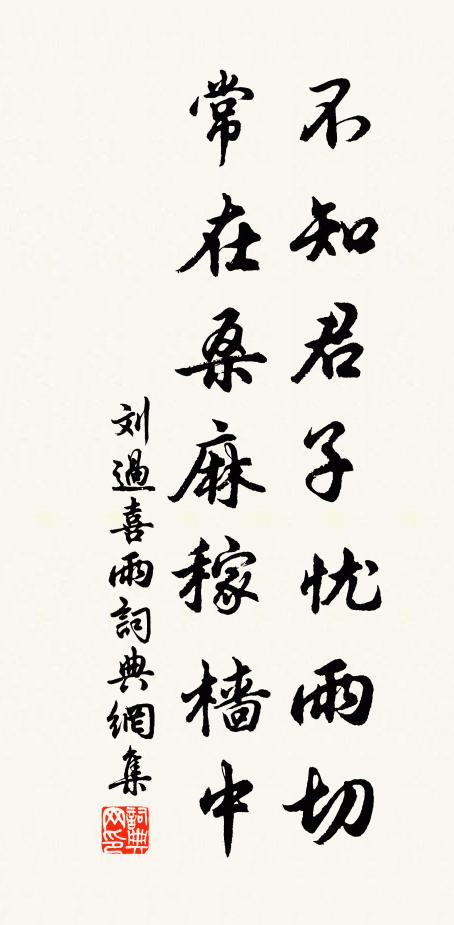 不知君子忧雨切
常在桑麻稼樯中
刘過喜雨詞典網集
詞典网印